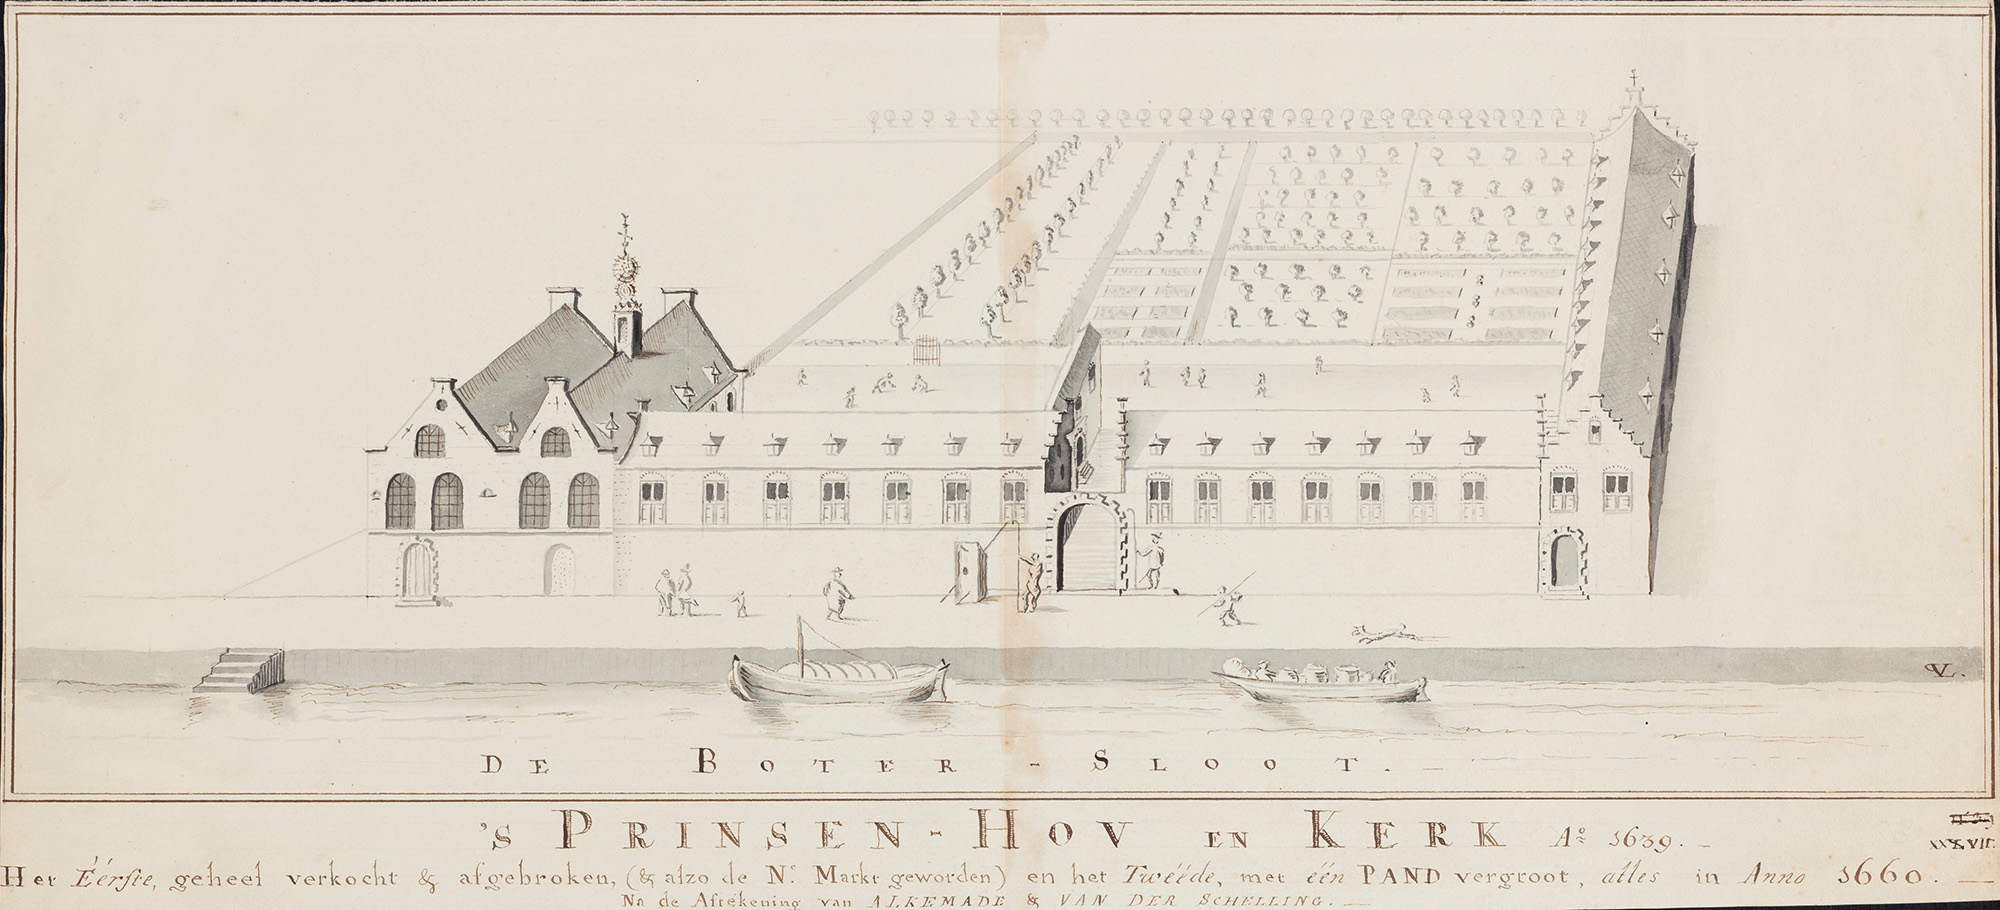 VL.
DE BOTER-SLOOT.
'S PRINSEN-HOV EN KERK Aº 1639.
XXXVII.
Het Éérste, geheel verkocht & afgebroken, (& alzo de Ne. Markt geworden) en het Twééde, met één PAND vergroot, alles in Anno 1660.
Na de Aftékening van ALKEMADE & VAN DER SCHELLING.